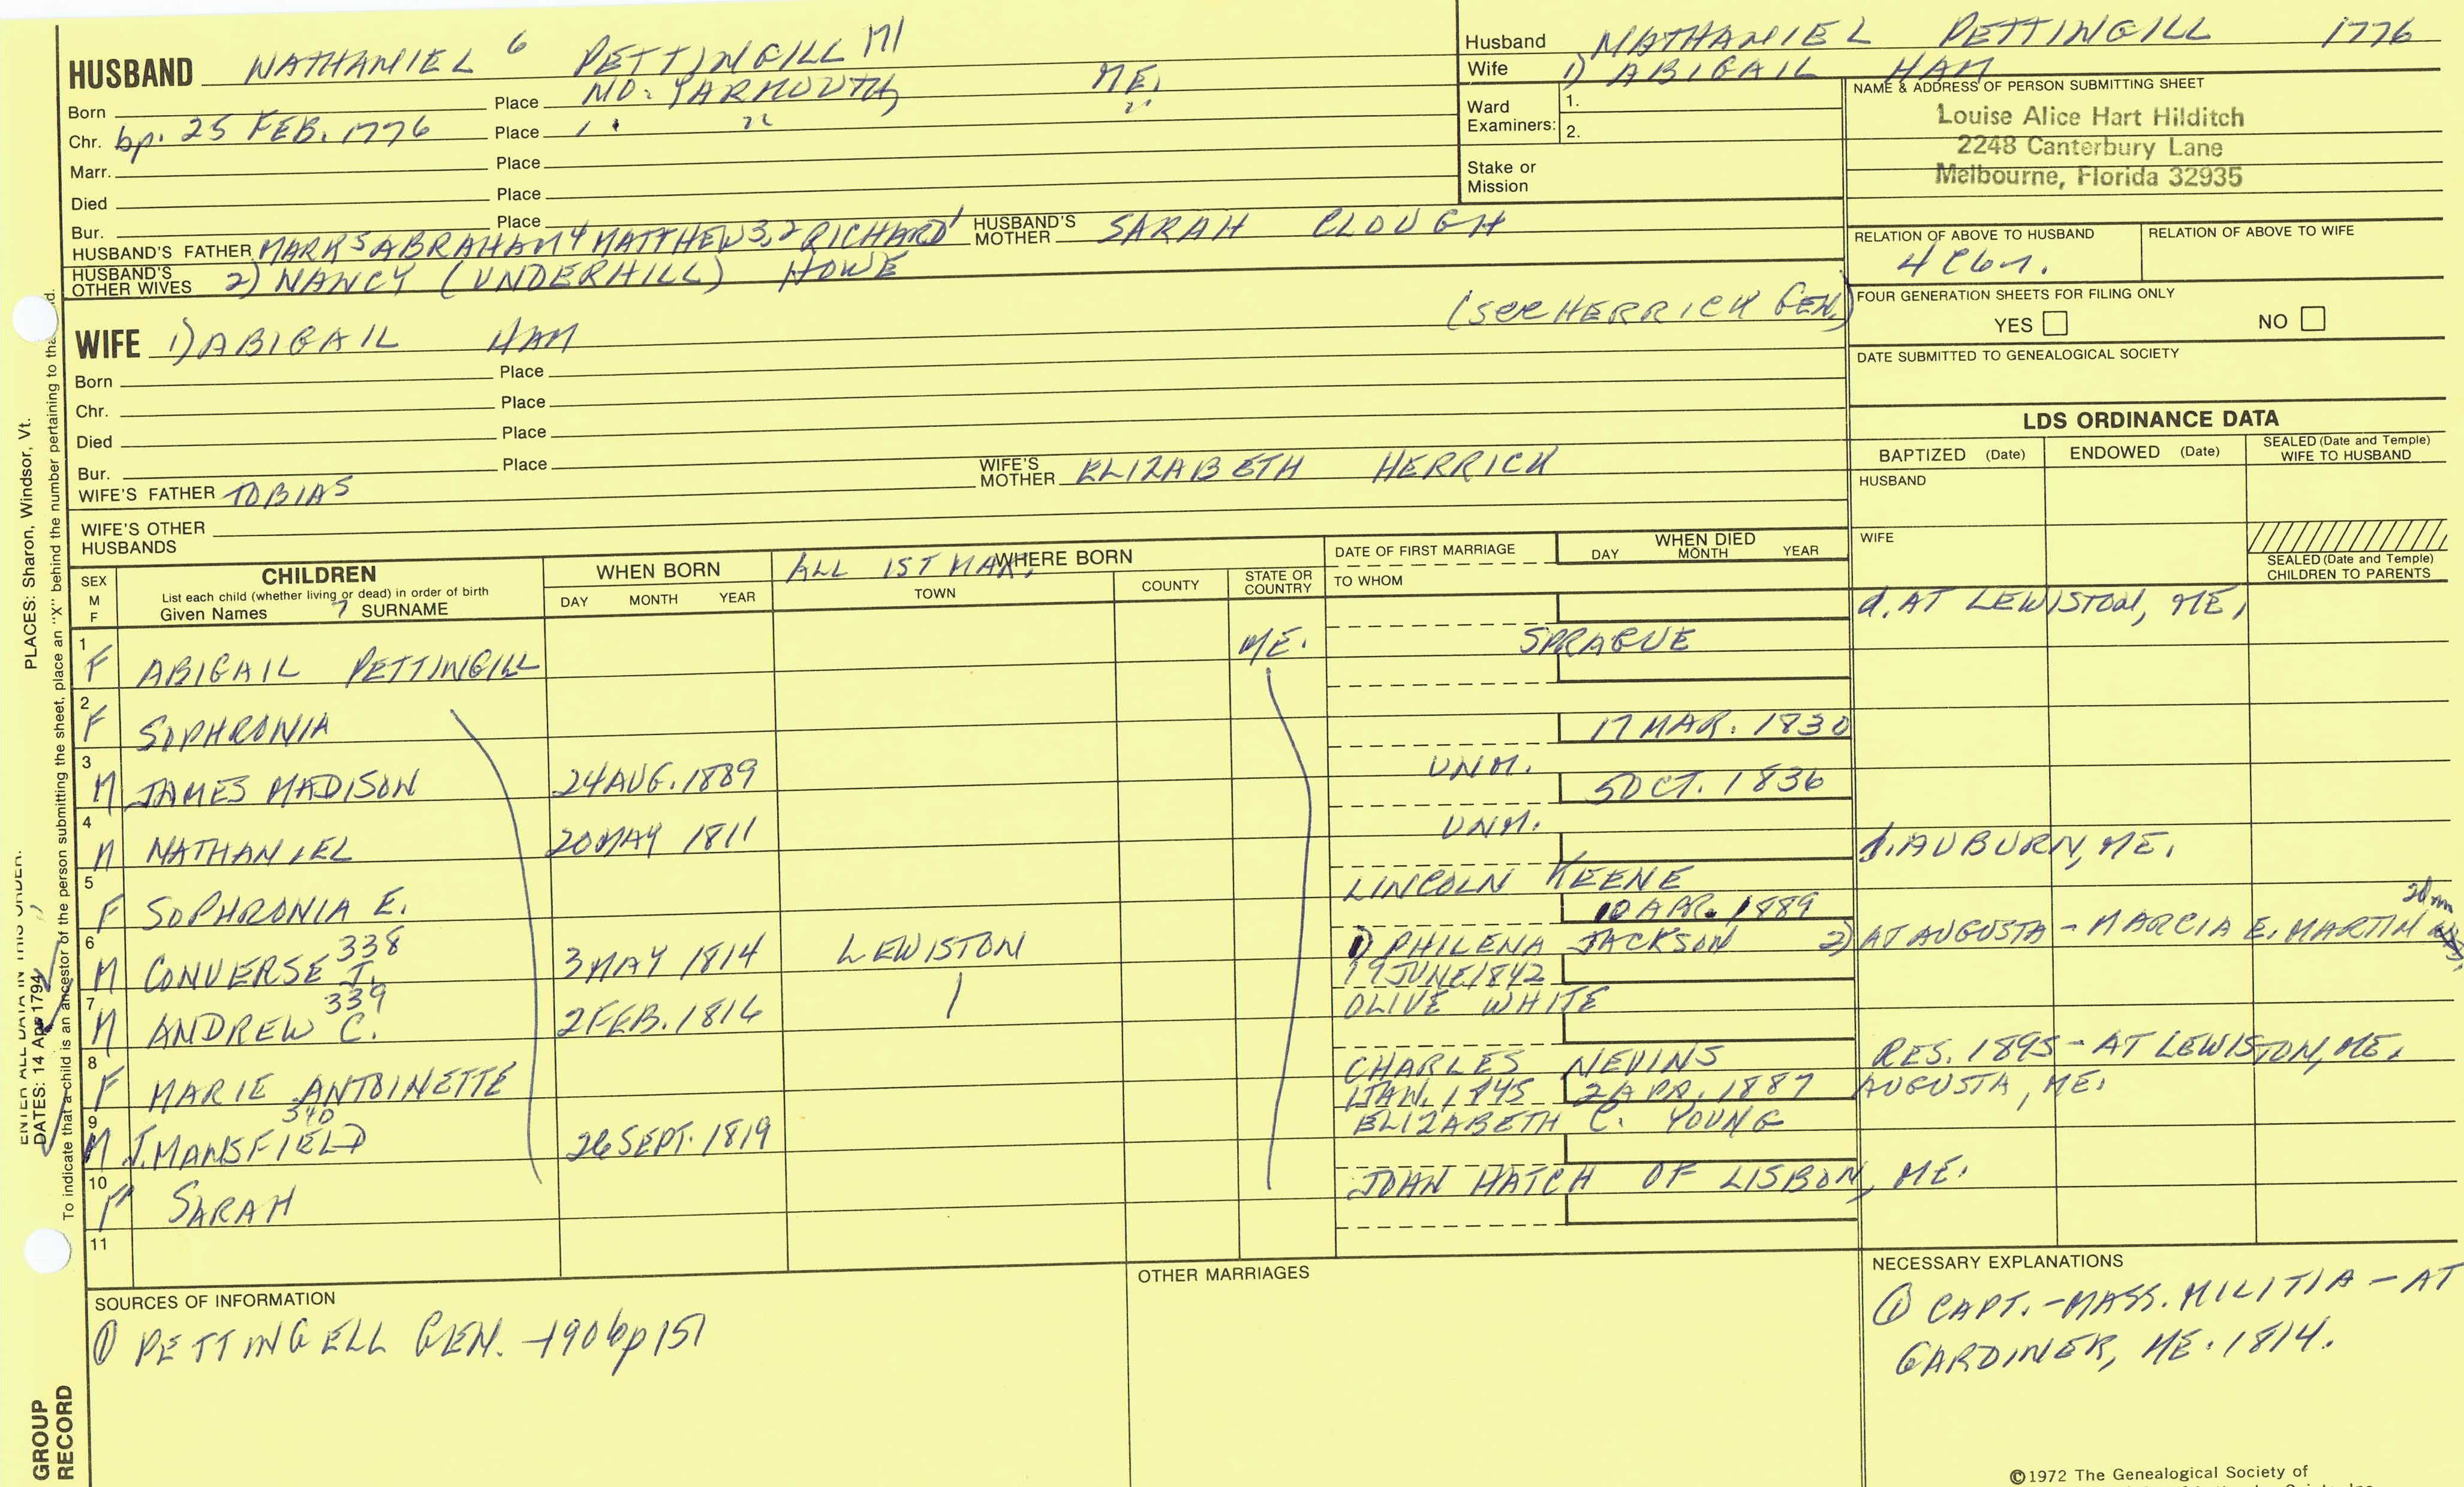 HUSBAND NATHANIEL 6 PETTINGILL 171
Born Place NO. YARMOUTH, ME.
Chr. bp. 25 FEB. 1776 Place " " "
Marr. Place
Died Place
Bur. Place
HUSBAND'S FATHER MARK 5 ABRAHAM 4 MATTHEW 3,2 RICHARD 1 HUSBAND'S MOTHER SARAH CLOUGH
HUSBAND'S OTHER WIVES 2) NANCY (UNDERHILL) HOWE
(see HERRICK GEN.)
WIFE 1) ABIGAIL HAM
Born Place
Chr. Place
Died Place
Bur. Place
WIFE'S FATHER TOBIAS WIFE'S MOTHER ELIZABETH HERRICK
WIFE'S OTHER HUSBANDS
Husband NATHANIEL PETTINGILL 1776
Wife 1) ABIGAIL HAM
Ward Examiners: 1.
2.
Stake or Mission
NAME & ADDRESS OF PERSON SUBMITTING SHEET
Louise Alice Hart Hilditch
2248 Canterbury Lane
Melbourne, Florida 32935
RELATION OF ABOVE TO HUSBAND RELATION OF ABOVE TO WIFE
FOUR GENERATION SHEETS FOR FILING ONLY
YES NO
DATE SUBMITTED TO GENEALOGICAL SOCIETY
LDS ORDINANCE DATA
BAPTIZED (Date) ENDOWED (Date) SEALED (Date and Temple) WIFE TO HUSBAND
HUSBAND
WIFE
SEALED (Date and Temple) CHILDREN TO PARENTS
SEX M F
CHILDREN
List each child (whether living or dead) in order of birth
Given Names 7 SURNAME
WHEN BORN
DAY MONTH YEAR
ALL 1ST MAR. WHERE BORN
TOWN COUNTY STATE OR COUNTRY
DATE OF FIRST MARRIAGE
TO WHOM
WHEN DIED
DAY MONTH YEAR
1 F ABIGAIL PETTINGILL ME. SPRAGUE d. AT LEWISTON, ME.
2 F SOPHRONIA 17 MAR. 1830
3 M JAMES MADISON 24 AUG. 1889 UNM. 5 OCT. 1836
4 M NATHANIEL 20 MAY 1811 UNM.
5 F SOPHRONIA E. LINCOLN KEENE d. AUBURN, ME.
10 APR. 1889
6 M CONVERSE J. 338 3 MAY 1814 LEWISTON 1) PHILENA JACKSON 2) AT AUGUSTA - MARCIA E. MARTIN
19 JUNE 1842
7 M ANDREW C. 339 2 FEB. 1816 OLIVE WHITE
8 F MARIE ANTOINETTE CHARLES NEVINS RES. 1895 - AT LEWISTON, ME.
1 JAN. 1845 2 APR. 1887 AUGUSTA, ME.
9 M J. MANSFIELD 340 26 SEPT. 1819 ELIZABETH C. YOUNG
10 F SARAH JOHN HATCH OF LISBON, ME.
11
SOURCES OF INFORMATION
① PETTINGELL GEN. - 1906 p 151
OTHER MARRIAGES
NECESSARY EXPLANATIONS
① CAPT. - MASS. MILITIA - AT
GARDINER, ME. 1814.
©1972 The Genealogical Society of
PLACES: Sharon, Windsor, Vt.
ENTER ALL DATA IN THIS ORDER:
DATES: 14 Apr 1794
To indicate that a child is an ancestor of the person submitting the sheet, place an "X" behind the number pertaining to that
GROUP
RECORD